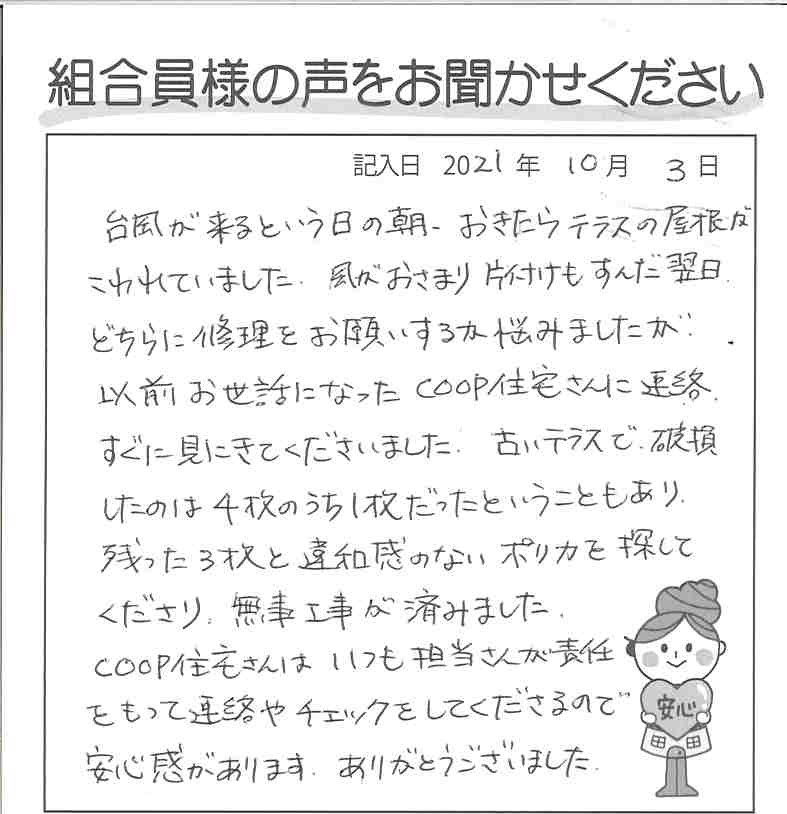 組合員様の声をお聞かせください
記入日 2021年 10月 3日
台風が来るという日の朝、おきたらテラスの屋根が
こわれていました。風がおさまり片付けもすんだ翌日、
どちらに修理をお願いするか悩みましたが、
以前お世話になったCOOP住宅さんに連絡。
すぐに見にきてくださいました。古いテラスで、破損
したのは4枚のうち1枚だったということもあり、
残った3枚と違和感のないポリカを探して
くださり、無事工事が済みました。
COOP住宅さんはいつも担当さんが責任
をもって連絡やチェックをしてくださるので
安心感があります。ありがとうございました。
安心